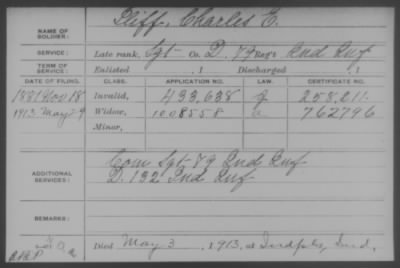 Iliff, Charles E.
NAME OF SOLDIER:
SERVICE: Late rank, Sgt Co. D, 79 Reg't Ind Inf
TERM OF SERVICE: Enlisted , 1 Discharged , 1
DATE OF FILING. CLASS. APPLICATION NO. LAW. CERTIFICATE NO.
1881 Nov 18 Invalid, 433,638 258,211
1913. May 29 Widow, 1008558 762796
Minor,
ADDITIONAL SERVICES: Com Sgt 79 Ind Inf
D. 132 Ind Inf
REMARKS:
Died May 3, 1913, at Indpls, Ind,